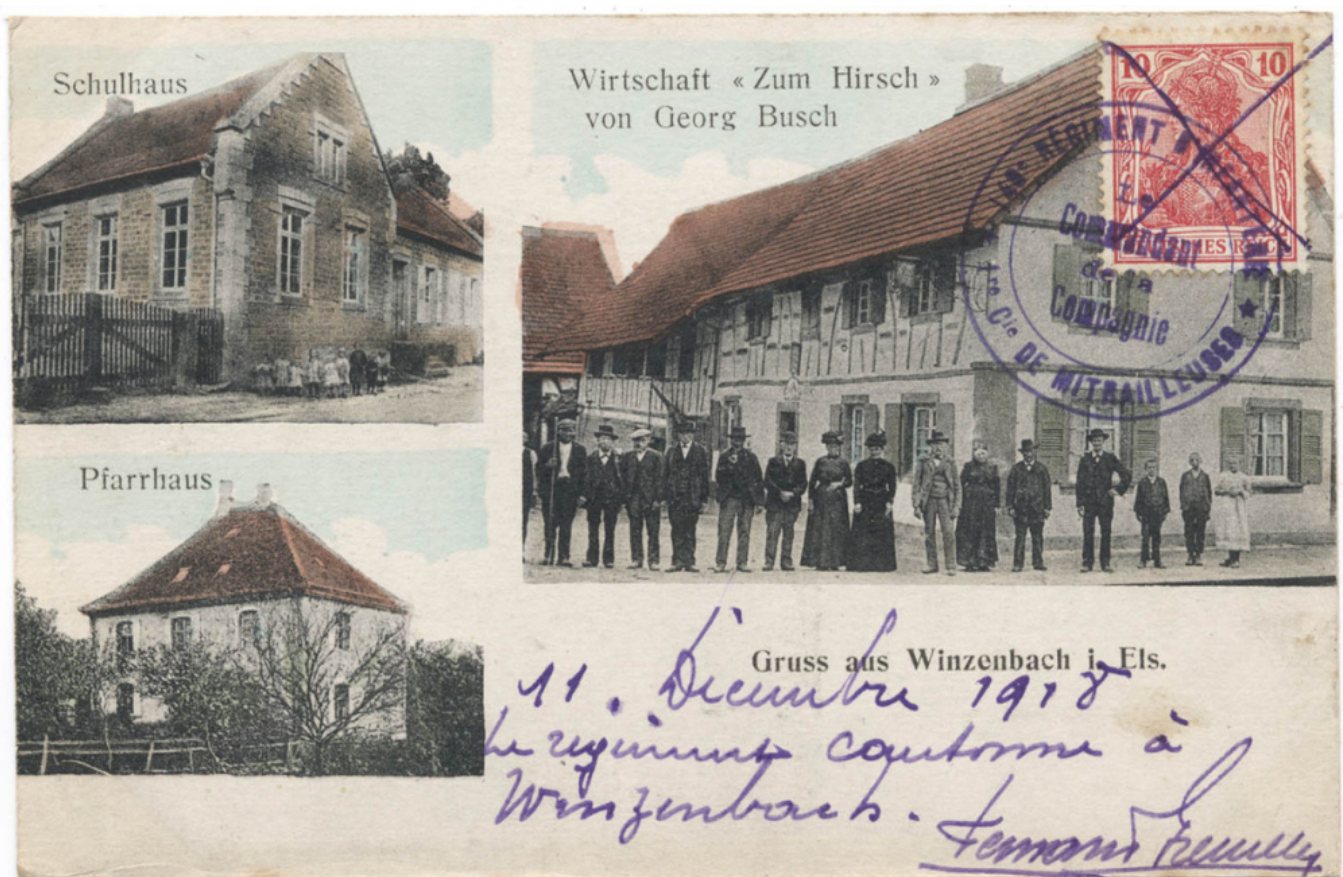 Schulhaus
Wirtschaft « Zum Hirsch »
von Georg Busch
10 10
DEUTSCHES REICH
RÉGIMENT D'INFANTERIE
Le
Commandant
de la
Compagnie
1re Cie DE MITRAILLEUSES ★
Pfarrhaus
Gruss aus Winzenbach i. Els.
11. Décembre 1918
Le régiment cantonne à
Winzenbach.
Fernand